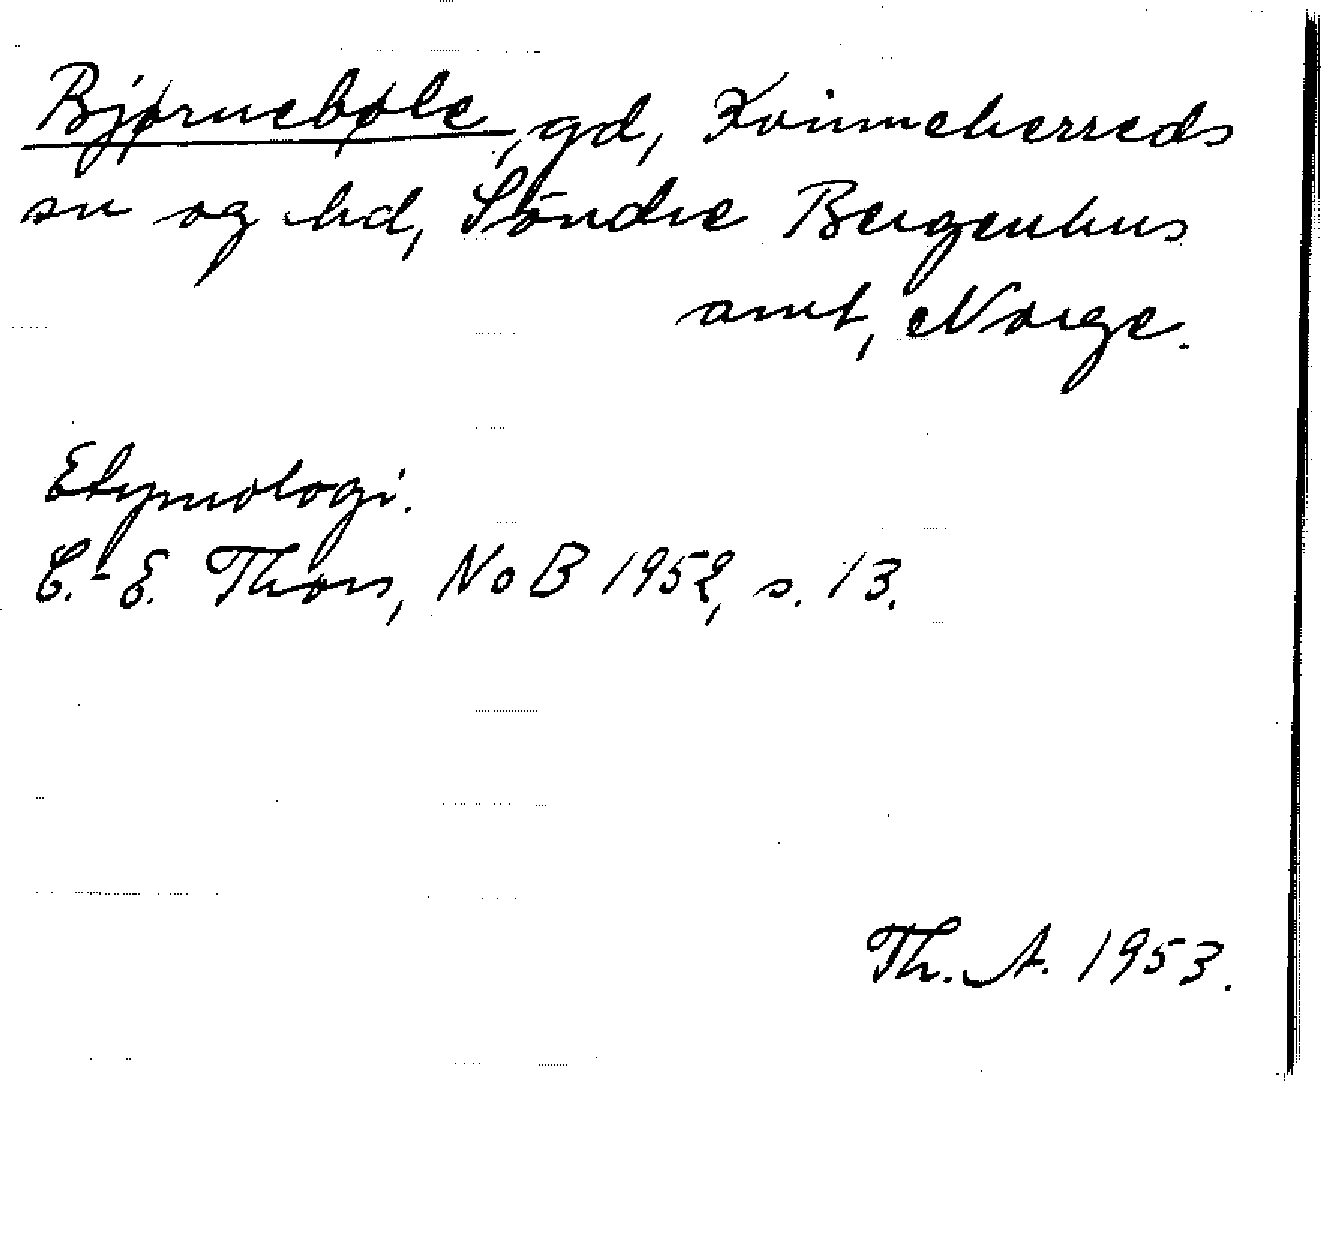 Bjørnebøle, gd, Kvinneherreds
sn og hd, Söndre Bergenhus
amt, Norge.
Etymologi.
C.-E. Thors, NoB 1952, s. 13.
Th. A. 1953.